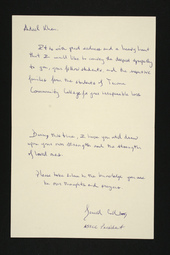 It is with great sadness and a heavy heart
that I would like to convey the deepest sympathy
to you, your fellow students, and the respective
families from the students of
Community College
During this time, I hope you will draw
upon your own strength and the strengths
of loved ones.
Please take in the knowledge you are
in our thoughts and prayers.